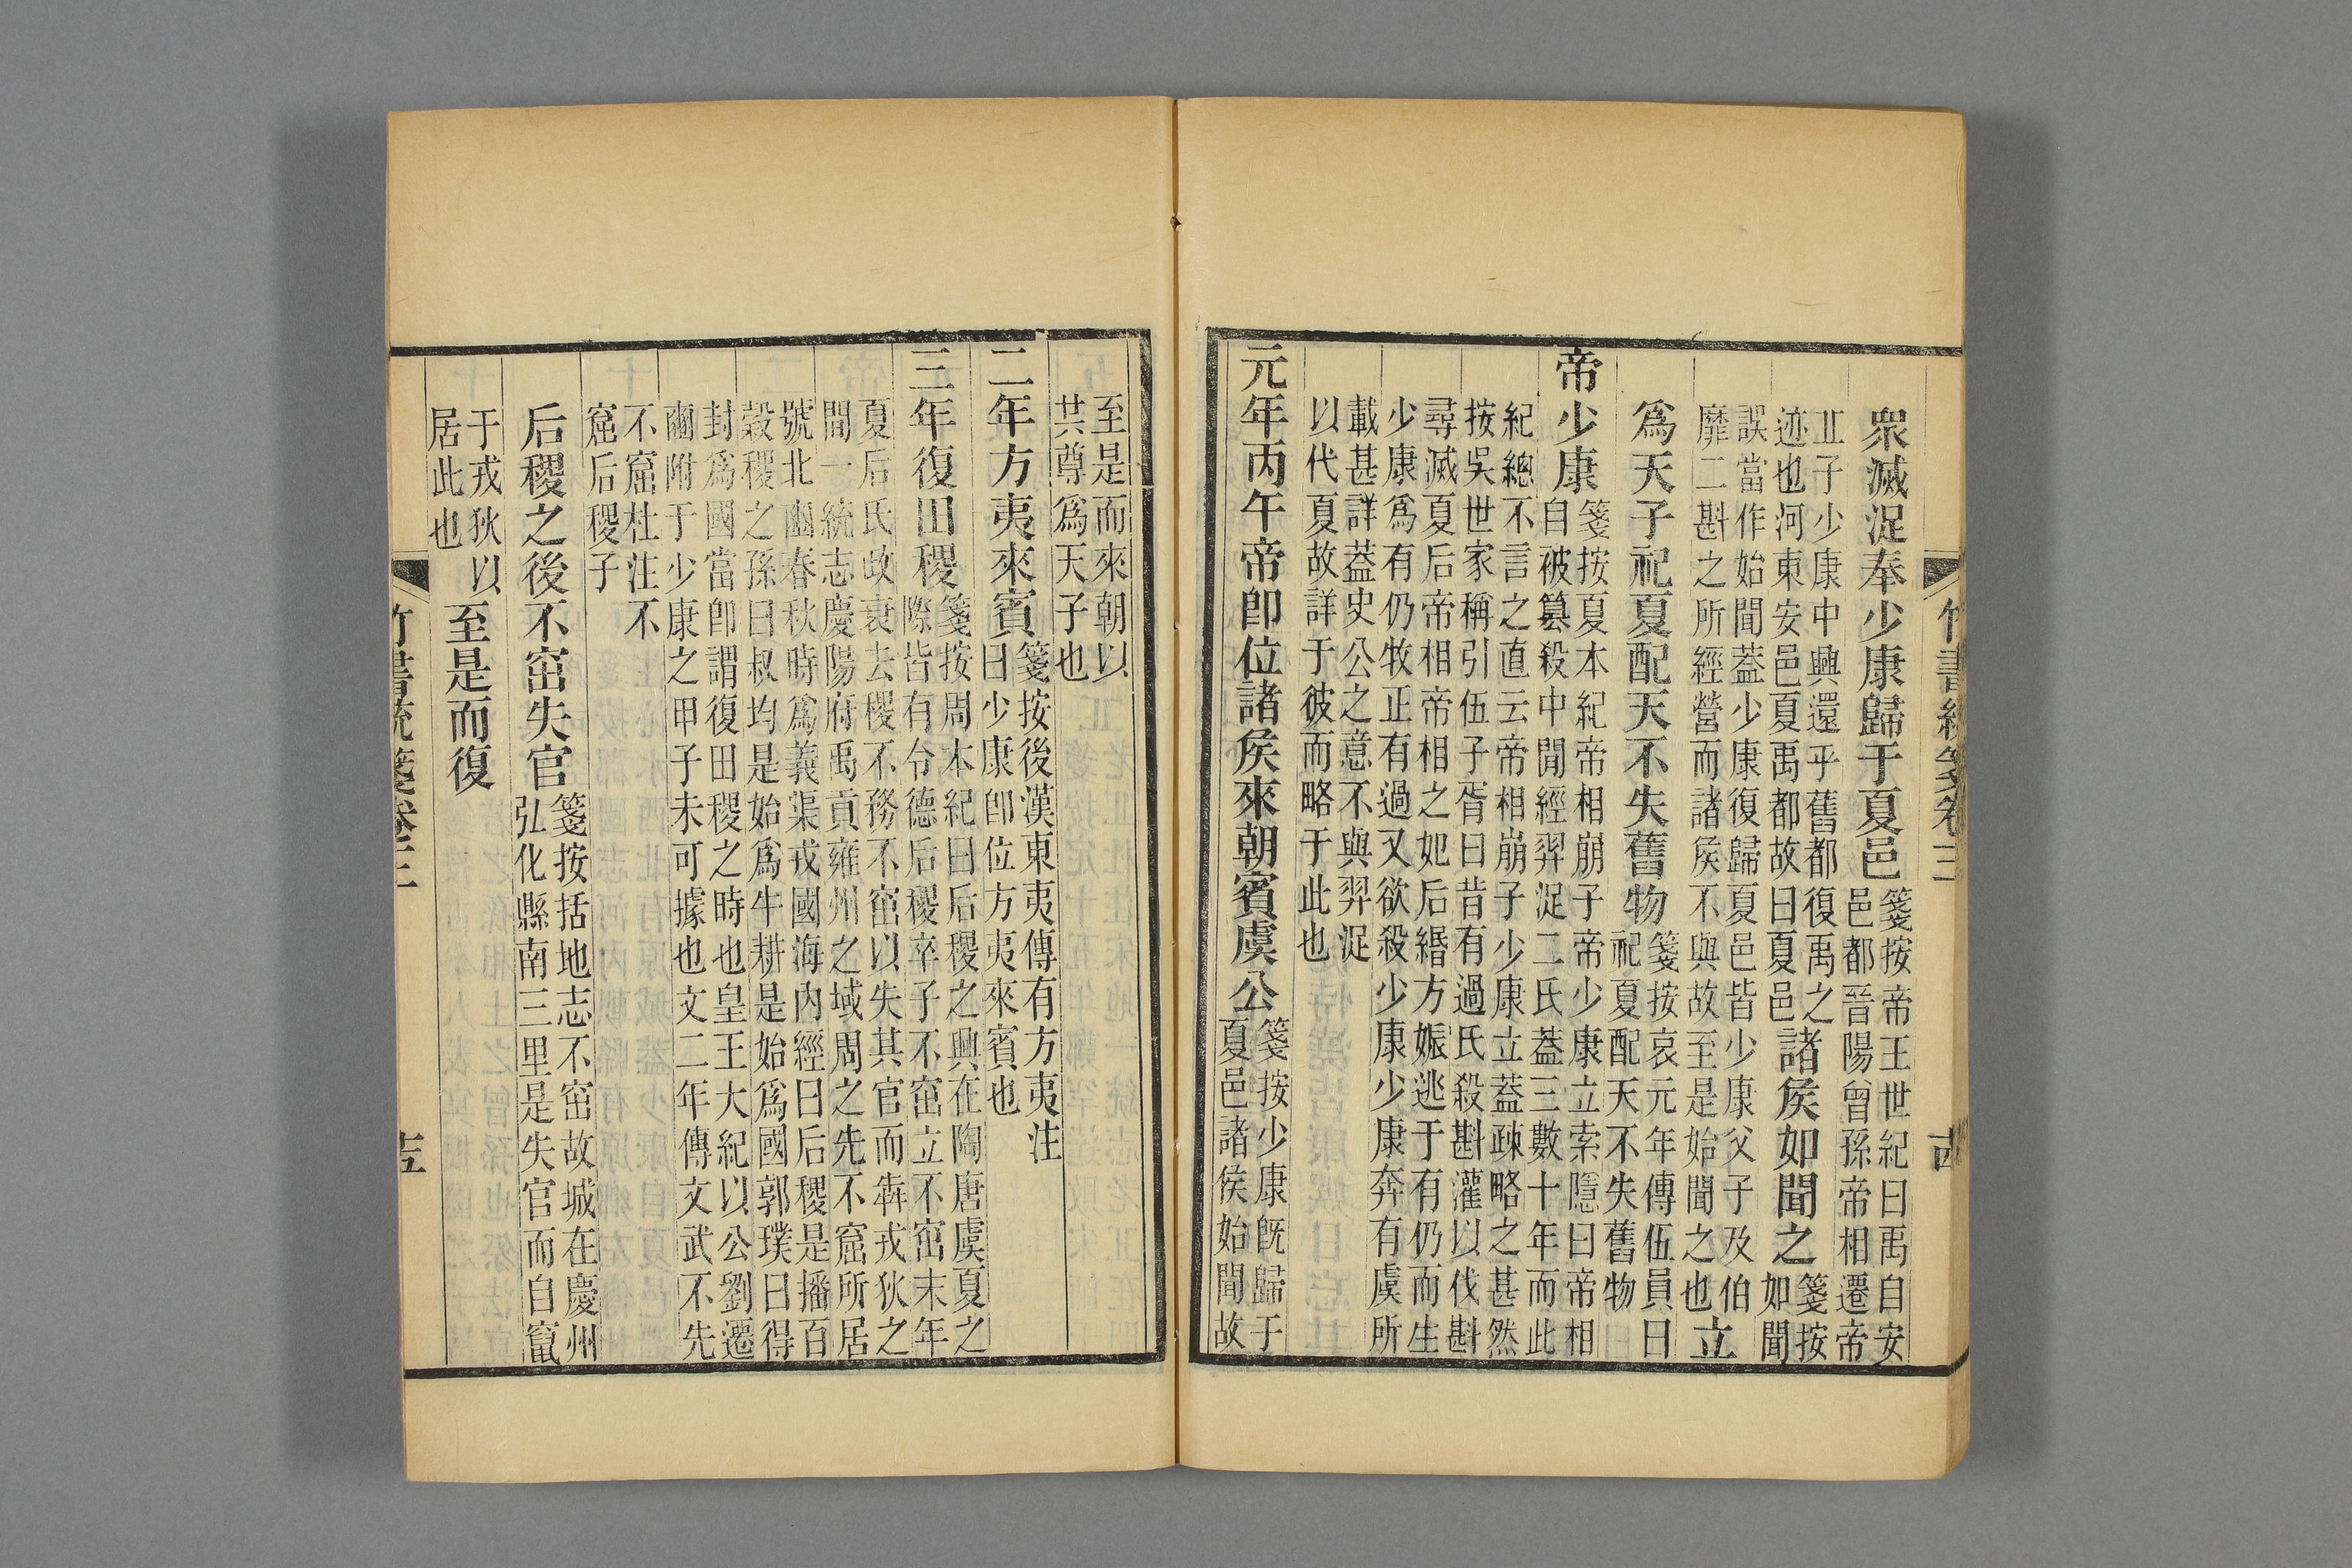 竹書統箋卷三 十四
衆滅浞奉少康歸于夏邑
箋按帝王世紀曰禹自安
邑都晉陽曾孫帝相遷帝
丘子少康中興還乎舊都復禹之
迹也河東安邑夏禹都故曰夏邑
諸侯如聞之
箋按
如聞
誤當作始聞蓋少康復歸夏邑皆少康父子及伯
靡二斟之所經營而諸侯不與故至是始聞之也
立
爲天子祀夏配天不失舊物
箋按哀元年傳伍員曰
祀夏配天不失舊物
帝少康
箋按夏本紀帝相崩子帝少康立索隱曰帝相
自被篡殺中閒經羿浞二氏蓋三數十年而此
紀總不言之直云帝相崩子少康立蓋疎略之甚然
按吳世家稱引伍子胥曰昔有過氏殺斟灌以伐斟
尋滅夏后帝相帝相之妃后緡方娠逃于有仍而生
少康爲有仍牧正有過又欲殺少康少康奔有虞所
載甚詳蓋史公之意不與羿浞
以代夏故詳于彼而略于此也
元年丙午帝卽位諸侯來朝賓虞公
箋按少康旣歸于
夏邑諸侯始聞故
至是而來朝以
共尊爲天子也
二年方夷來賓
箋按後漢東夷傳有方夷注
曰少康卽位方夷來賓也
三年復田稷
箋按周本紀曰后稷之興在陶唐虞夏之
際皆有令德后稷卒子不窋立不窋末年
夏后氏政衰去稷不務不窋以失其官而犇戎狄之
間一統志慶陽府禹貢雍州之域周之先不窟所居
號北豳春秋時爲義渠戎國海內經曰后稷是播百
穀稷之孫曰叔均是始爲牛耕是始爲國郭璞曰得
封爲國當卽謂復田稷之時也皇王大紀以公劉遷
豳附于少康之甲子未可據也文二年傳文武不先
不窟杜注不
窟后稷子
后稷之後不窋失官
箋按括地志不窋故城在慶州
弘化縣南三里是失官而自竄
于戎狄以
居此也
至是而復
竹書統箋卷三 十五